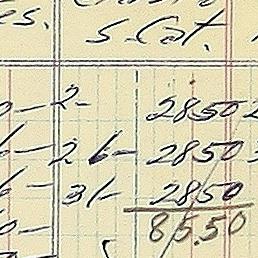 es.
S. Cat.
0-2- 2850 2
6-2 6- 2850 3
6- 3/- 2850
0- 85.50